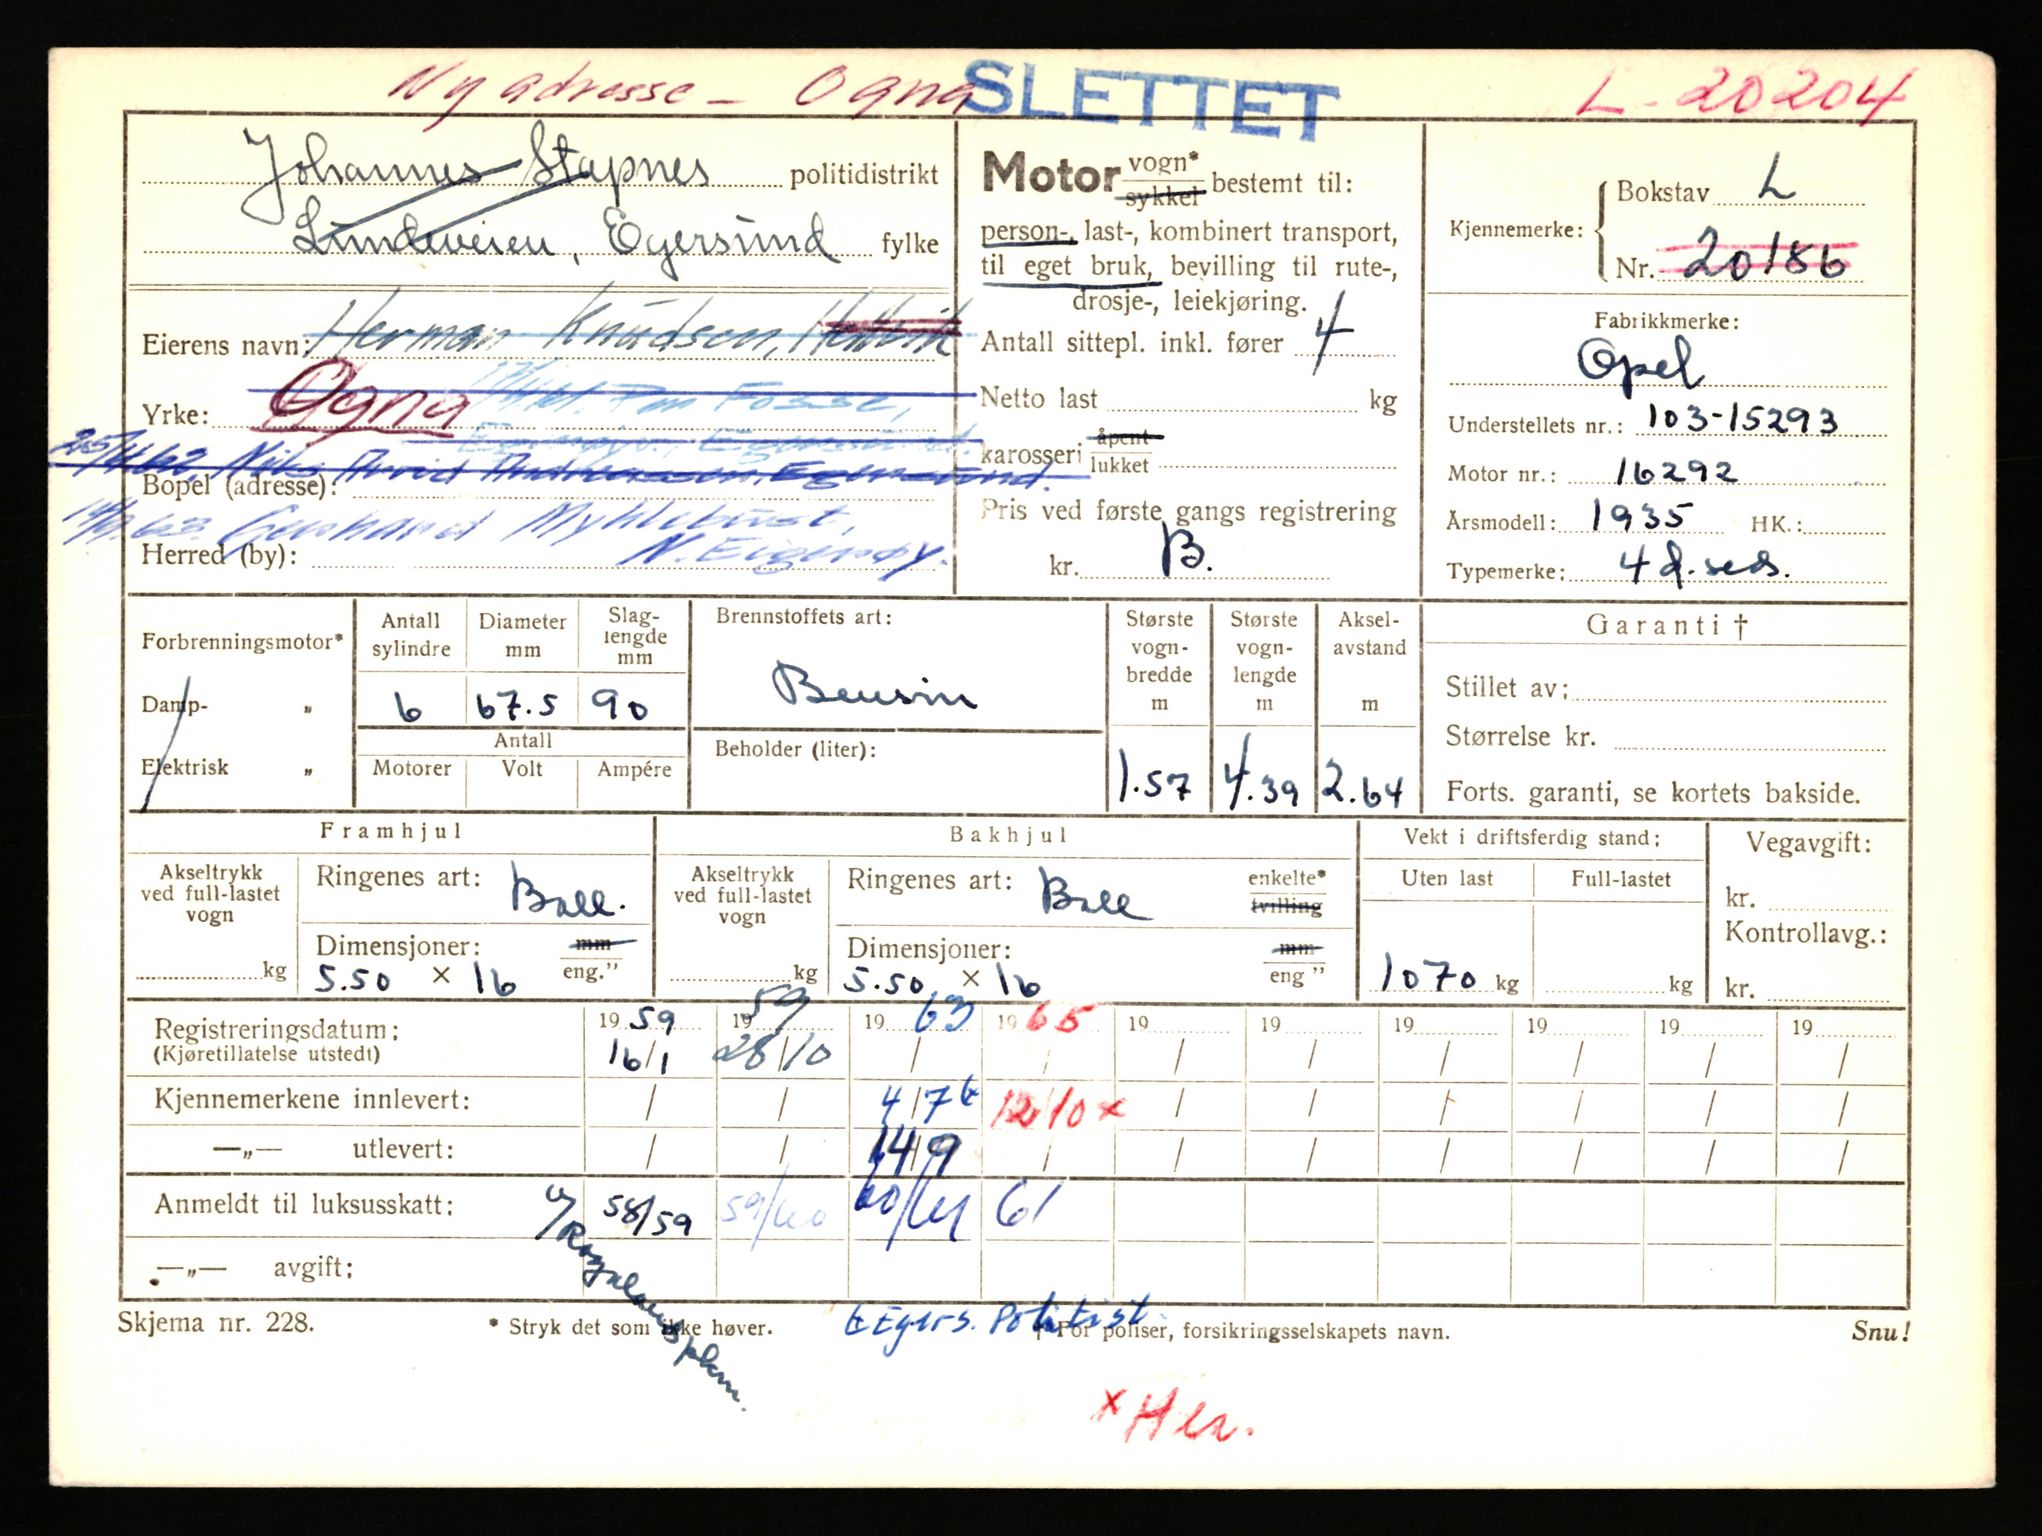 Ny adresse - Ogna SLETTET L-20204
Johannes Stapnes politidistrikt
Lindeveien, Egersund fylke
Eierens navn: Herman Knudsen, Hellvik
Yrke: Ogna
Egersund.
Bopel (adresse):
25/4.62. Nils Arvid Andreassen, Egersund.
14/9.63. Gerhard Myklebust,
Herred (by): N. Eigerøy.
Motor vogn* sykkel bestemt til:
person-, last-, kombinert transport,
til eget bruk, bevilling til rute-,
drosje-, leiekjøring.
Antall sittepl. inkl. fører 4
Netto last kg
karosseri åpent lukket
Pris ved første gangs registrering
kr. B.
Kjennemerke: Bokstav L
Nr. 20186
Fabrikkmerke:
Opel
Understellets nr.: 103-15293
Motor nr.: 16292
Årsmodell: 1935 HK.:
Typemerke: 4 d. sed.
Forbrenningsmotor*
Damp- „
Elektrisk „
Antall sylindre 6
Diameter mm 67.5
Slag-lengde mm 90
Antall
Motorer Volt Ampére
Brennstoffets art:
Bensin
Beholder (liter):
Største vogn-bredde m 1.57
Største vogn-lengde m 4.39
Aksel-avstand m 2.64
Garanti †
Stillet av:
Størrelse kr.
Forts. garanti, se kortets bakside.
Framhjul
Akseltrykk ved full-lastet vogn kg
Ringenes art: Ball.
Dimensjoner: mm eng."
5.50 × 16
Bakhjul
Akseltrykk ved full-lastet vogn kg
Ringenes art: Ball enkelte* tvilling
Dimensjoner: mm eng "
5.50 × 16
Vekt i driftsferdig stand:
Uten last Full-lastet
1070 kg kg
Vegavgift:
kr.
Kontrollavg.:
kr.
Registreringsdatum: 19 59 19 59 19 63 19 65 19 19 19 19 19 19
(Kjøretillatelse utstedt) 16/1 28/10 / / / / / / / /
Kjennemerkene innlevert: / / 4/7 t 12/10 x / / / / / /
—„— utlevert: / / 14/9 / / / / / / /
Anmeldt til luksusskatt: 58/59 59/60 60/61 61
—„— avgift:
Skjema nr. 228. * Stryk det som ikke høver. † For poliser, forsikringsselskapets navn. Snu!
t Egers. Politist.
x Her.